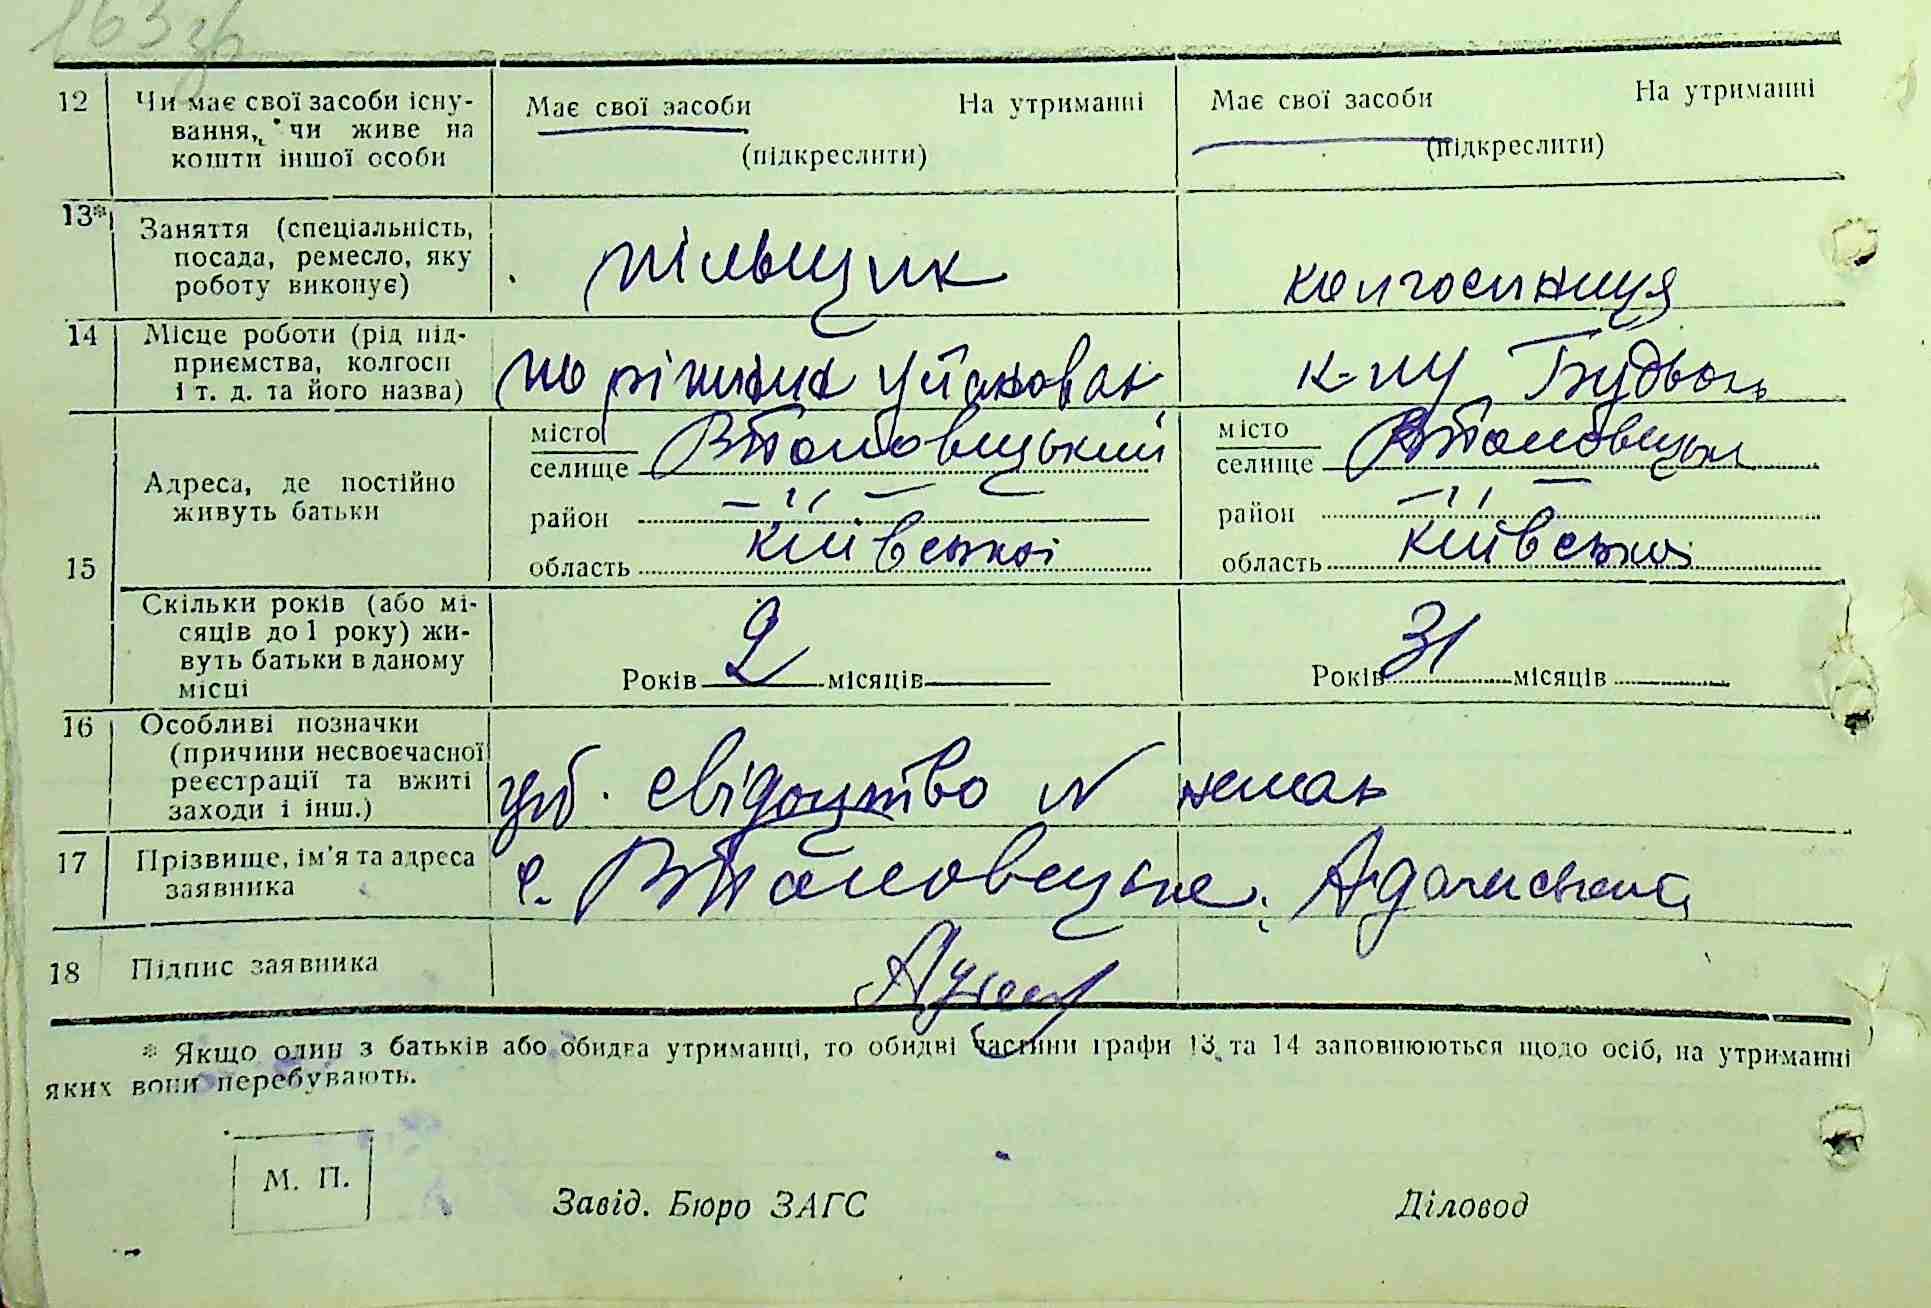 163зв
12 Чи має свої засоби існу- Має свої засоби На утриманні Має свої засоби На утриманні
вання, чи живе на
кошти іншої особи (підкреслити) (підкреслити)
13* Заняття (спеціальність,
посада, ремесло, яку пільщик колгоспниця
роботу виконує)
14 Місце роботи (рід під-
приємства, колгосп по різних установах к-пу
і т. д. та його назва)
місто місто
селище селище
Адреса, де постійно
живуть батьки район — ‖ — район — ‖ —
15 область Київської область Київської
Скільки років (або мі-
сяців до 1 року) жи-
вуть батьки в даному Років 2 місяців Років 31 місяців
місці
16 Особливі позначки
(причини несвоєчасної
реєстрації та вжиті свідоцтво № немає
заходи і інш.)
17 Прізвище, ім'я та адреса с.
заявника
18 Підпис заявника
* Якщо один з батьків або обидва утриманці, то обидві частини графи 13 та 14 заповнюються щодо осіб, на утриманні
яких вони перебувають.
М. П.
Завід. Бюро ЗАГС Діловод